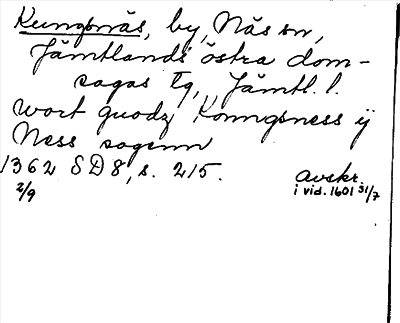 Kungsnäs, by, Näs sn,
Jämtlands östra dom-
sagas tg, Jämtl. l.
wort guodz Konngsness ÿ
Ness sogenn
1362 SD 8, s. 215. avskr.
2/9 i vid. 1601 31/7